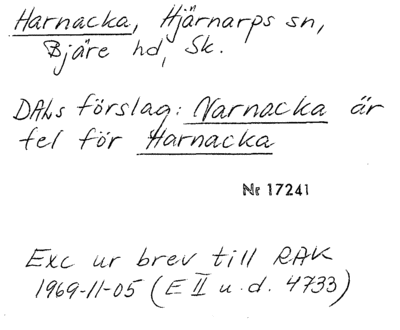 Harnacka, Hjärnarps sn,
Bjäre hd, Sk.
DALs förslag: Varnacka är
fel för Harnacka
Nr 17241
Exc ur brev till RAK
1969-11-05 (E II u.d. 4733)